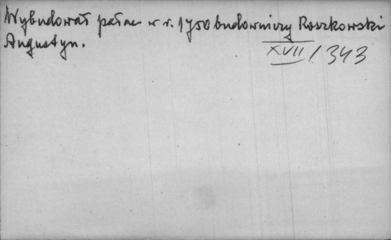 Wybudował pałac w r. 1750 budowniczy Roszkowski
Augustyn.
XVII / 343